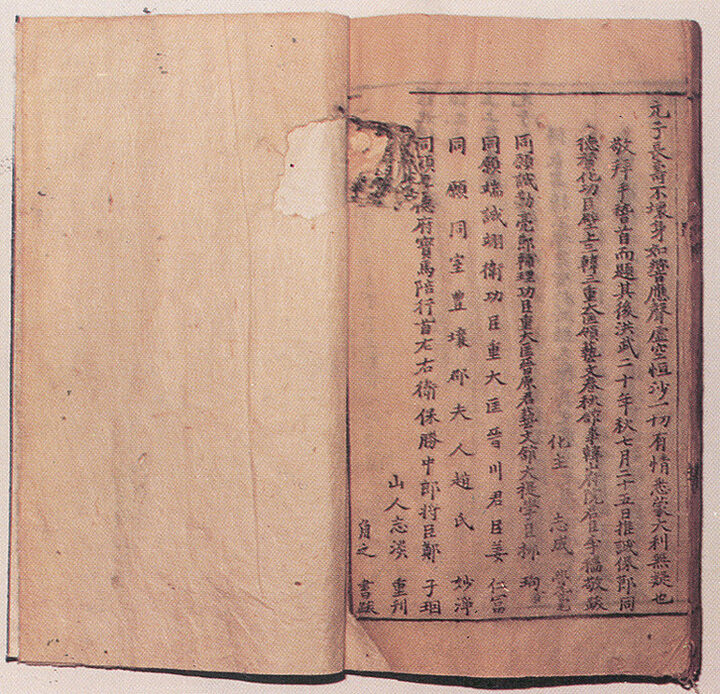 元子長壽不壞身如響應聲虛空恒沙一切有情悉蒙大利無疑也
敬拜手稽首而題其後洪武二十年秋七月二十五日推誠保節同
德賛化功臣壁上三韓三重大匡領藝文春秋館事韓山府院君臣李穡敬跋
化主 志成
同願誠勤亮節輔理功臣重大匡晉原君藝文館大提學臣柳珣
同願端誠翊衛功臣重大匡晉川君臣姜仁富
同願同室豊壤郡夫人趙氏 妙淨
同願德府寶馬陪行首左右衛保勝中郎将臣鄭子
山人志淡 重刊
角之 書跋